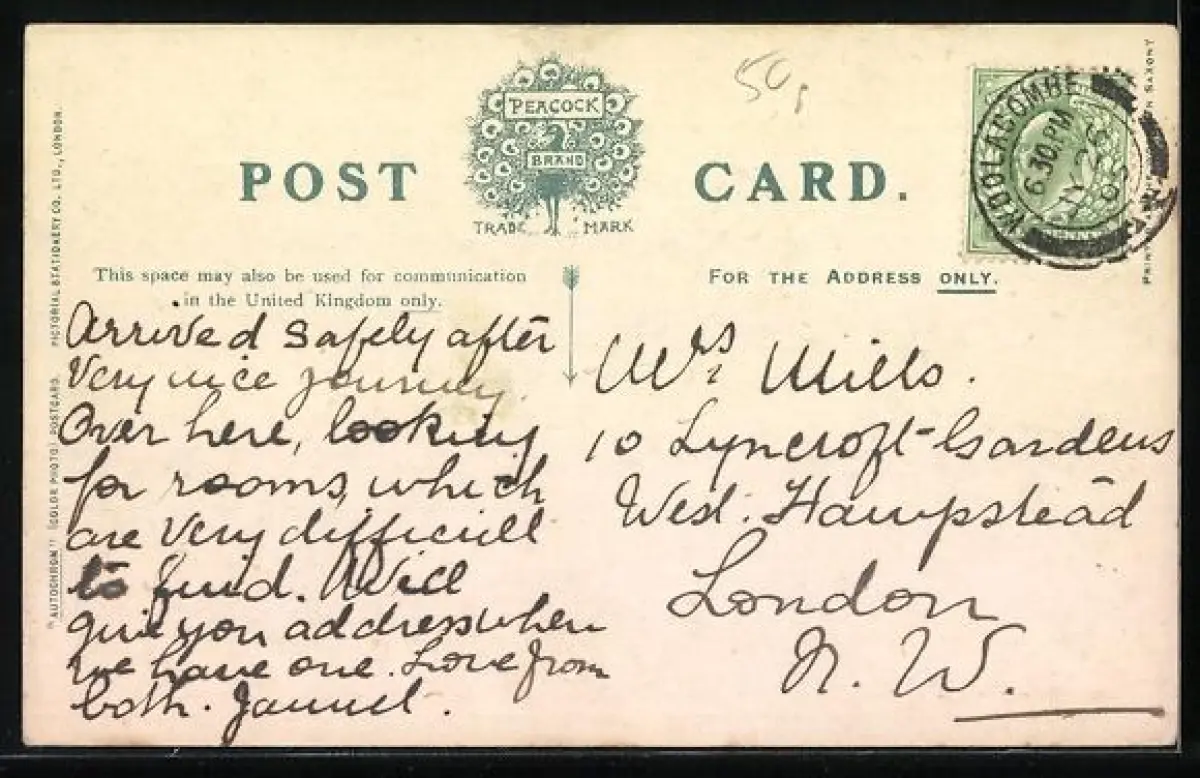 POST CARD.
PEACOCK
BRAND
TRADE MARK
50
WOOLACOMBE
6.30 PM
05
This space may also be used for communication
in the United Kingdom only.
FOR THE ADDRESS ONLY.
Arrived safely after
Very nice journey.
Over here, looking
for rooms, which
are Very difficult
to find. Will
give you address when
we have one. Love from
both.
Mrs Mills.
10 Lyncroft Gardens
West. Hampstead
London
N. W.
"AUTOCHROM" (COLOR PHOTO) POSTCARD. PICTORIAL STATIONERY CO., LTD., LONDON.
SAXONY